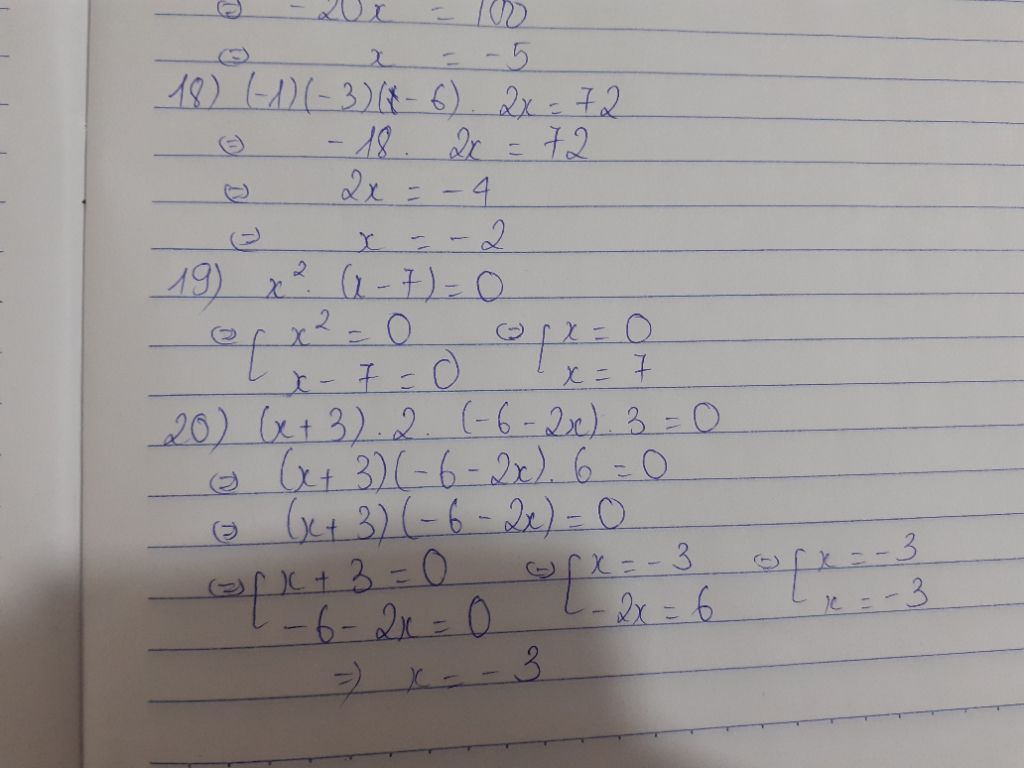 ⇔ -20x = 100
⇔ x = -5
18) (-1)(-3)(-6). 2x = 72
⇔ -18. 2x = 72
⇔ 2x = -4
⇔ x = -2
19) x². (x-7) = 0
⇔ [ x² = 0 ⇔ [ x = 0
x - 7 = 0 x = 7
20) (x+3).2. (-6-2x).3 = 0
⇔ (x+3)(-6-2x).6 = 0
⇔ (x+3)(-6-2x) = 0
⇔ [ x+3 = 0 ⇔ [ x = -3 ⇔ [ x = -3
-6-2x = 0 -2x = 6 x = -3
⇒ x = -3